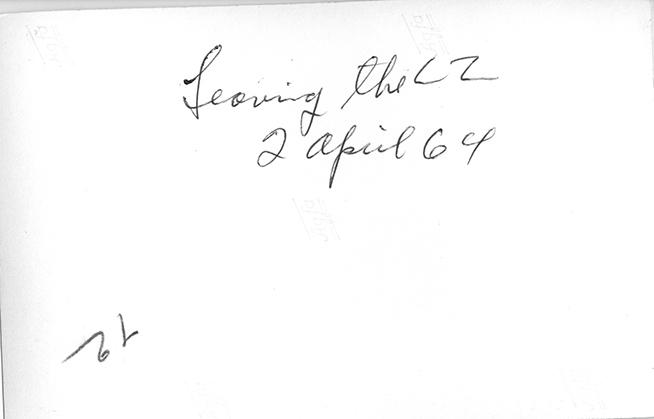 Leaving the LZ
2 April 64
12